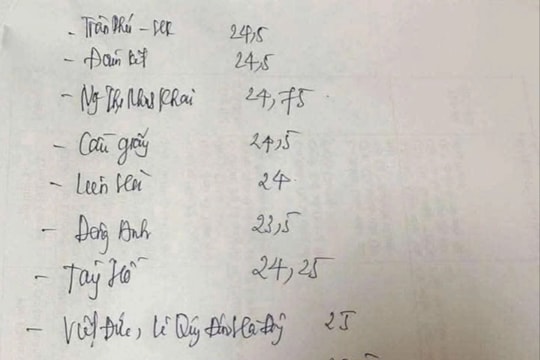 - Trần Phú - HK 24,5
- Đoàn Kết 24,5
- Ng Thị Minh Khai 24,75
- Cầu giấy 24,5
- Liên Hà 24
- Đông Anh 23,5
- Tây Hồ 24,25
- Việt Đức, Lê Quý Đôn Hà Đông 25